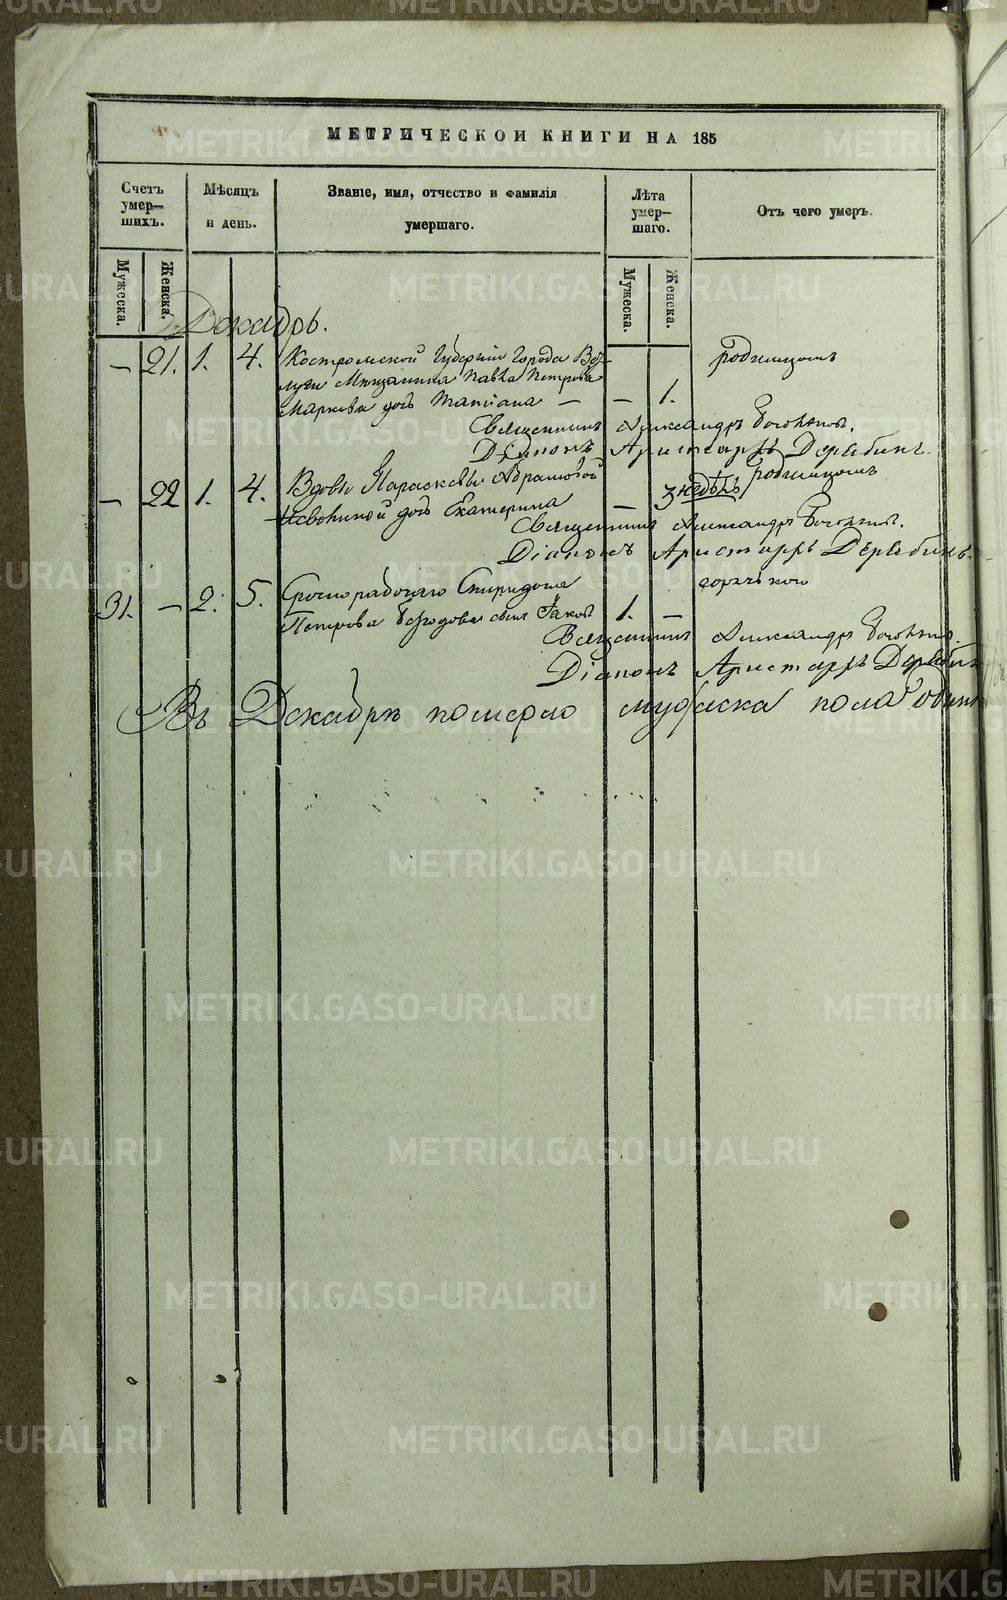 МЕТРИЧЕСКОЙ КНИГИ НА 185
Счетъ умер— шихъ.
Мѣсяцъ и день.
Званіе, имя, отчество и фамилія умершаго.
Лѣта умер— шаго.
Отъ чего умеръ.
Мужеска.
Женска.
Мужеска.
Женска.
Декабрь.
— 21. 1. 4. Костромской Губерніи Города Вет-
луги Мѣщанина Павла Петрова
Маркова дочь Татіана — — 1. родимцомъ
Священникъ Александръ
Діаконъ Аристархъ Дерябинъ.
— 22 1. 4. Вдовы Параскевы Абрамовой
дочь Екатерина — 3 недѣль родимцомъ
Священникъ Александръ
Діаконъ Аристархъ Дерябинъ.
31. — 2. 5. Срочнорабочаго Спиридона
Петрова сынъ Іаковъ 1. — горячкою
Священникъ Александръ
Діаконъ Аристархъ Дерябинъ
Въ Декабрѣ померло мужеска пола одинъ
METRIKI.GASO-URAL.RU